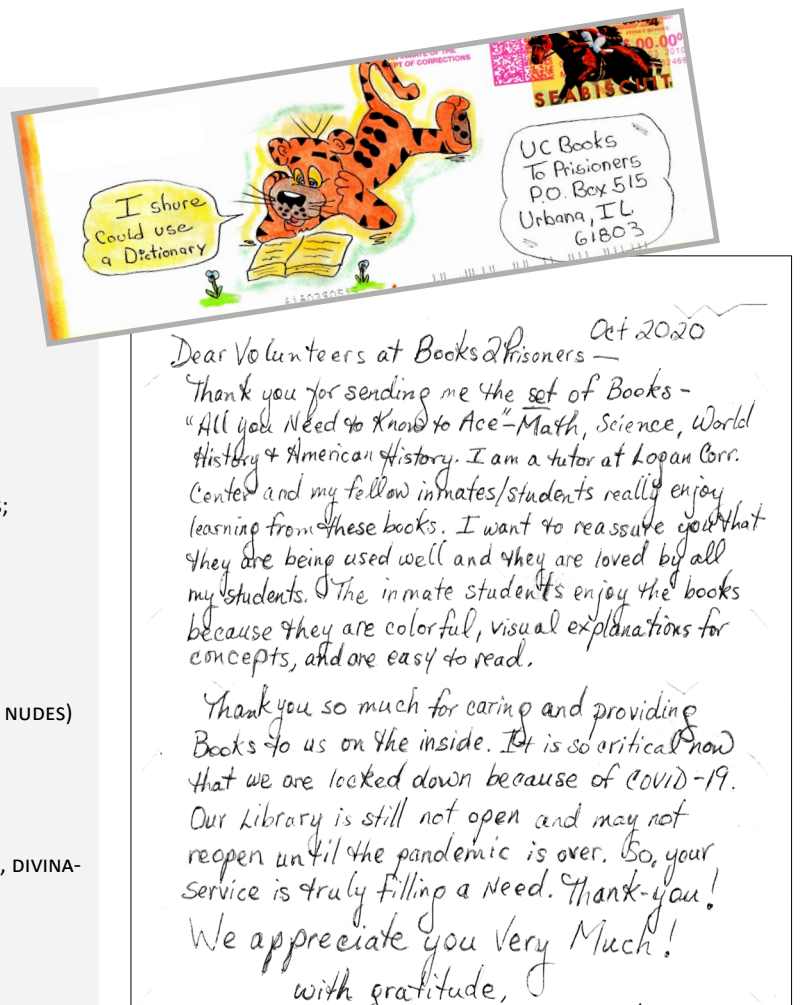 INMATE OF THE
DEPT OF CORRECTIONS
00.00
SEABISCUIT
I shure
Could use
a Dictionary
UC Books
To Prisioners
P.O. Box 515
Urbana, IL
61803
S;
NUDES)
, DIVINA-
Oct 2020
Dear Volunteers at Books2Prisoners —
Thank you for sending me the set of Books -
"All you Need to Know to Ace" - Math, Science, World
History & American History. I am a tutor at Logan Corr.
Center and my fellow inmates/students really enjoy
learning from these books. I want to reassure you that
they are being used well and they are loved by all
my students. The inmate students enjoy the books
because they are colorful, visual explanations for
concepts, and are easy to read.
Thank you so much for caring and providing
Books to us on the inside. It is so critical now
that we are locked down because of COVID-19.
Our Library is still not open and may not
reopen until the pandemic is over. So, your
service is truly filling a Need. Thank-you!
We appreciate you Very Much!
with gratitude,